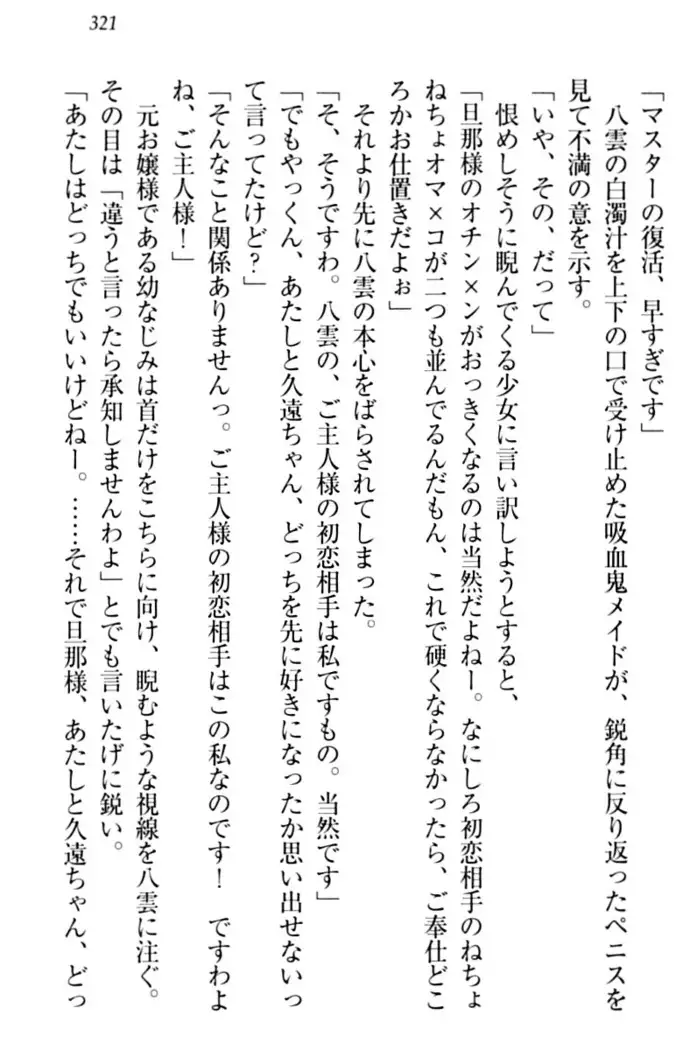 321
「マスターの復活、早すぎです」
八雲の白濁汁を上下の口で受け止めた吸血鬼メイドが、鋭角に反り返ったペニスを
見て不満の意を示す。
「いや、その、だって」
恨めしそうに睨んでくる少女に言い訳しようとすると、
「旦那様のオチン×ンがおっきくなるのは当然だよねー。なにしろ初恋相手のねちょ
ねちょオマ×コが二つも並んでるんだもん、これで硬くならなかったら、ご奉仕どこ
ろかお仕置きだよぉ」
それより先に八雲の本心をばらされてしまった。
「そ、そうですわ。八雲の、ご主人様の初恋相手は私ですもの。当然です」
「でもやっくん、あたしと久遠ちゃん、どっちを先に好きになったか思い出せないっ
て言ってたけど?」
「そんなこと関係ありませんっ。ご主人様の初恋相手はこの私なのです!　ですわよ
ね、ご主人様!」
元お嬢様である幼なじみは首だけをこちらに向け、睨むような視線を八雲に注ぐ。
その目は「違うと言ったら承知しませんわよ」とでも言いたげに鋭い。
「あたしはどっちでもいいけどねー。……それで旦那様、あたしと久遠ちゃん、どっ